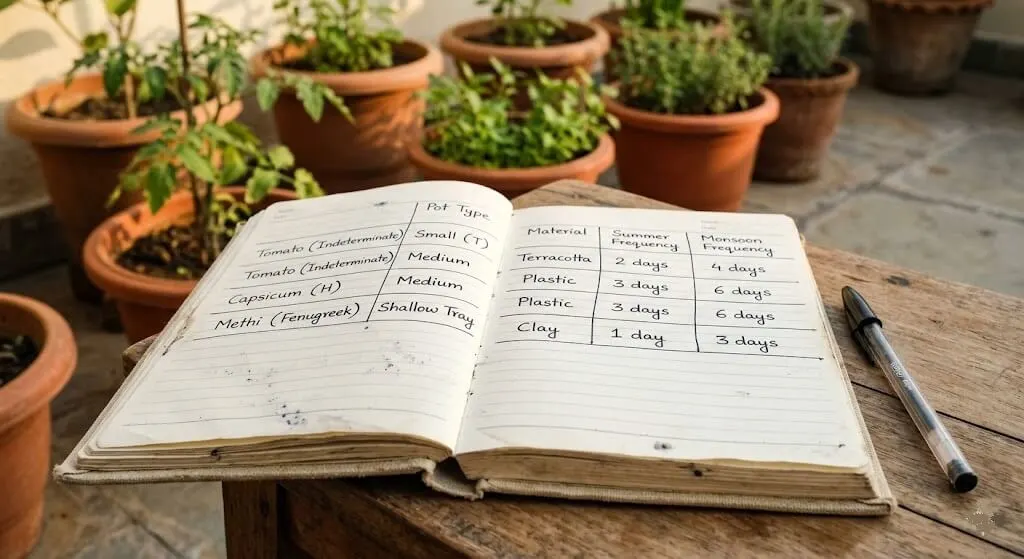 Pot Type
Tomato (Indeterminate) Small (T)
Tomato (Indeterminate) Medium
Capsicum (H) Medium
Methi (Fenugreek) Shallow Tray
Material Summer Frequency Monsoon Frequency
Terracotta 2 days 4 days
Plastic 3 days 6 days
Plastic 3 days 6 days
Clay 1 day 3 days